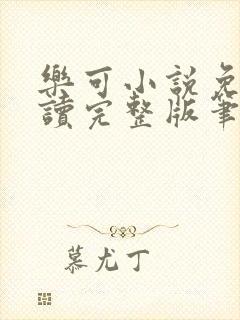 樂可小說免
讀完整版筆
慕尤丁